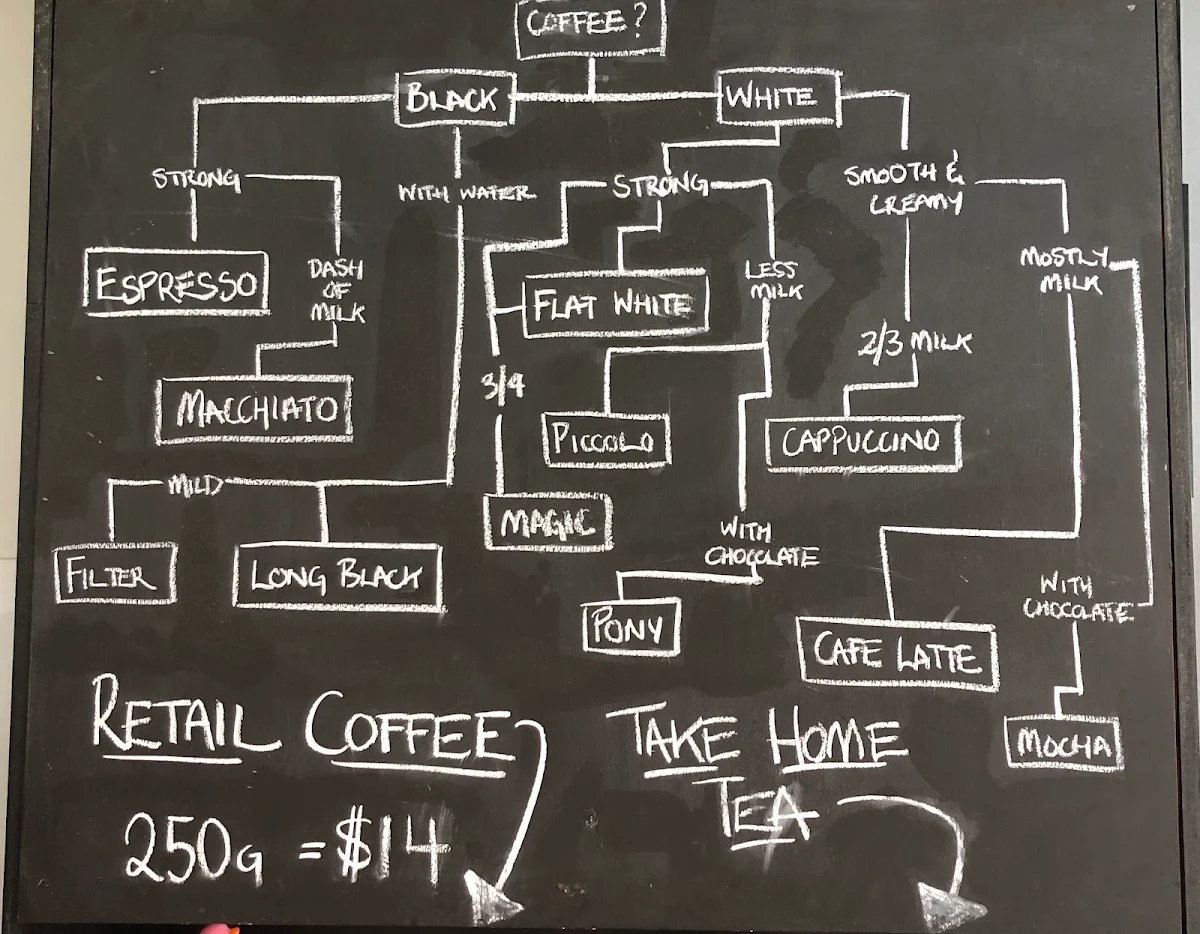 COFFEE?
BLACK
WHITE
STRONG
WITH WATER
STRONG
SMOOTH &
CREAMY
ESPRESSO
DASH
OF
MILK
FLAT WHITE
LESS
MILK
MOSTLY
MILK
2/3 MILK
MACCHIATO
3/4
PICCOLO
CAPPUCCINO
MILD
MAGIC
WITH
CHOCOLATE
FILTER
LONG BLACK
PONY
WITH
CHOCOLATE
CAFE LATTE
MOCHA
RETAIL COFFEE
250G = $14
TAKE HOME
TEA